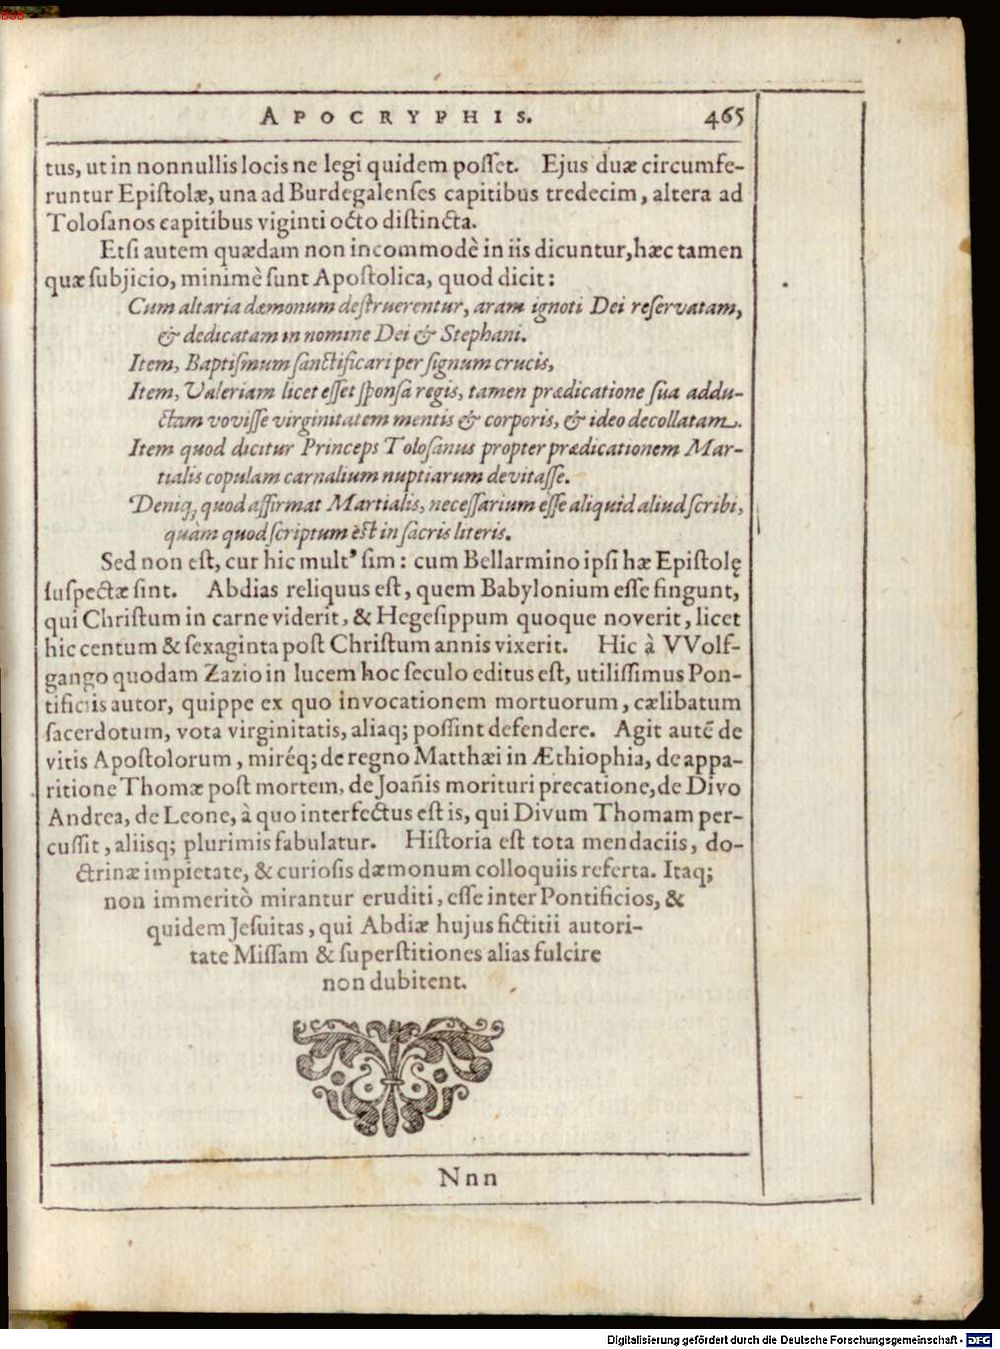 APOCRYPHIS. 465
tus, ut in nonnullis locis ne legi quidem posset. Ejus duæ circumfe-
runtur Epistolæ, una ad Burdegalenses capitibus tredecim, altera ad
Tolosanos capitibus viginti octo distincta.
Etsi autem quædam non incommodè in iis dicuntur, hæc tamen
quæ subjicio, minimè sunt Apostolica, quod dicit:
Cum altaria dæmonum destruerentur, aram ignoti Dei reservatam,
& dedicatam in nomine Dei & Stephani.
Item, Baptismum sanctificari per signum crucis,
Item, Valeriam licet esset sponsa regis, tamen prædicatione sua addu-
ctam vovisse virginitatem mentis & corporis, & ideo decollatam.
Item quod dicitur Princeps Tolosanus propter prædicationem Mar-
tialis copulam carnalium nuptiarum devitasse.
Deniq; quod affirmat Martialis, necessarium esse aliquid aliud scribi,
quàm quod scriptum est in sacris literis.
Sed non est, cur hic mult’ sim: cum Bellarmino ipsi hæ Epistolę
suspectæ sint. Abdias reliquus est, quem Babylonium esse fingunt,
qui Christum in carne viderit, & Hegesippum quoque noverit, licet
hic centum & sexaginta post Christum annis vixerit. Hic à VVolf-
gango quodam Zazio in lucem hoc seculo editus est, utilissimus Pon-
tificiis autor, quippe ex quo invocationem mortuorum, cælibatum
sacerdotum, vota virginitatis, aliaq; possint defendere. Agit autē de
vitis Apostolorum, miréq; de regno Matthæi in Æthiophia, de appa-
ritione Thomæ post mortem, de Joañis morituri precatione, de Divo
Andrea, de Leone, à quo interfectus est is, qui Divum Thomam per-
cussit, aliisq; plurimis fabulatur. Historia est tota mendaciis, do-
ctrinæ impietate, & curiosis dæmonum colloquiis referta. Itaq;
non immeritò mirantur eruditi, esse inter Pontificios, &
quidem Jesuitas, qui Abdiæ hujus fictitii autori-
tate Missam & superstitiones alias fulcire
non dubitent.
Nnn
Digitalisierung gefördert durch die Deutsche Forschungsgemeinschaft - DFG